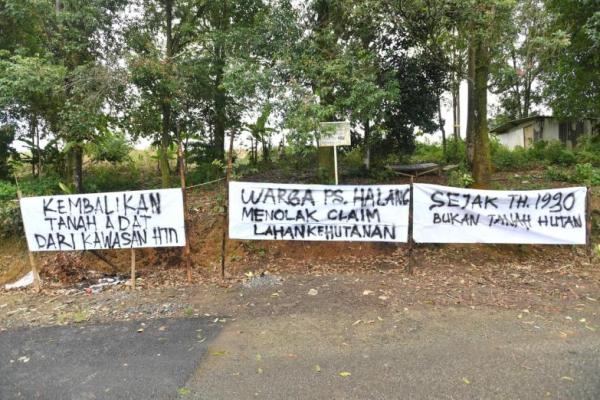 KEMBALIKAN
TANAH ADAT
DARI KAWASAN HTI
WARGA PS. HALANG
MENOLAK CLAIM
LAHAN KEHUTANAN
SEJAK TH. 1930
BUKAN TANAH HUTAN